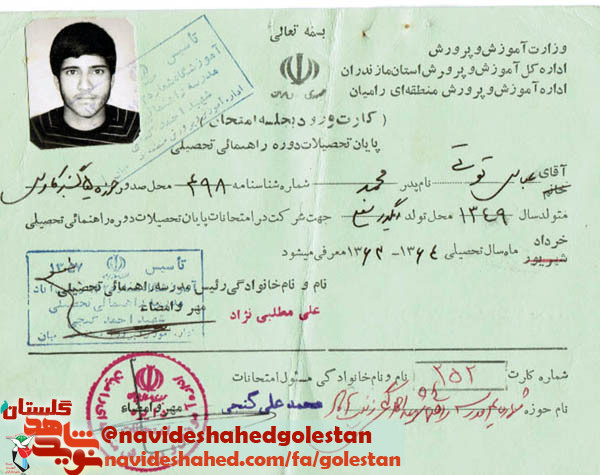 بسمه تعالی
وزارت آموزش و پرورش
اداره کل آموزش و پرورش استان مازندران
اداره آموزش و پرورش منطقه‌ای رامیان
(کارت ورود بجلسه امتحان)
پایان تحصیلات دوره راهنمائی تحصیلی
آقای
خانم
عباس
نام پدر محمد شماره شناسنامه ۴۹۸ محل صدور حوزه ۵ گنبد کاوس
متولد سال ۱۳۴۹ محل تولد جهت شرکت در امتحانات پایان تحصیلات دوره راهنمائی تحصیلی
خرداد
شهریور
ماه سال تحصیلی ۱۳۶۴-۱۳۶۳ معرفی میشود
نام و نام خانوادگی رئیس مدرسه راهنمائی تحصیلی
مهر و امضاء
علی مطلبی نژاد
تأسیس ۱۳۵۷
راهنمائی تحصیلی
شهید احمد گنجی
شماره کارت ۲۵۲ نام و نام خانوادگی مسئول امتحانات
نام حوزه
مهر و امضاء
محمد علی گنجی
تأسیس
شهید احمد
گلستان
نوید شاهد
@navideshahedgolestan
navideshahed.com/fa/golestan